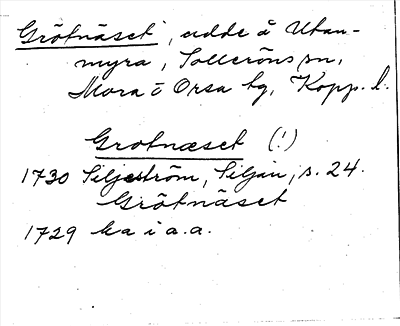 Grötnäset, udde å Utan-
myra, Solleröns sn,
Mora o Orsa tg, Kopp. l.
Grotnæset (!)
1730 Siljeström, Siljan, s. 24.
Grötnäset
1729 ka i a.a.